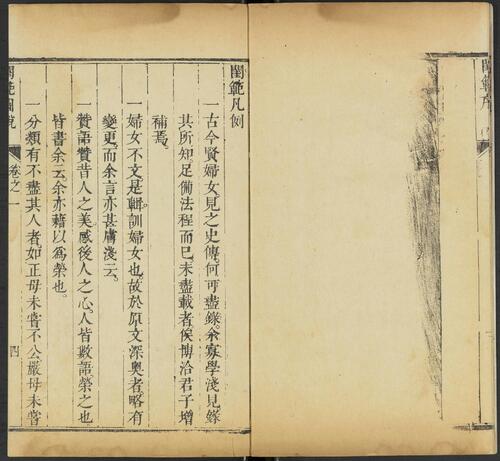 閨範序
閨範凡例
一古今賢婦女見之史傳。何可盡錄。余寡學淺見。錄
其所知。足備法程而已。未盡載者。俟博洽君子增
補焉。
一婦女不文。是輯訓婦女也。故於原文深奧者。略有
變更。而余言亦甚膚淺云。
一贊語贊昔人之美。感後人之心。人皆數語。榮之也。
皆書余云。余亦藉以爲榮也。
一分類有不盡其人者。如正母未嘗不公嚴母未嘗
閨範圖說
卷之一
四